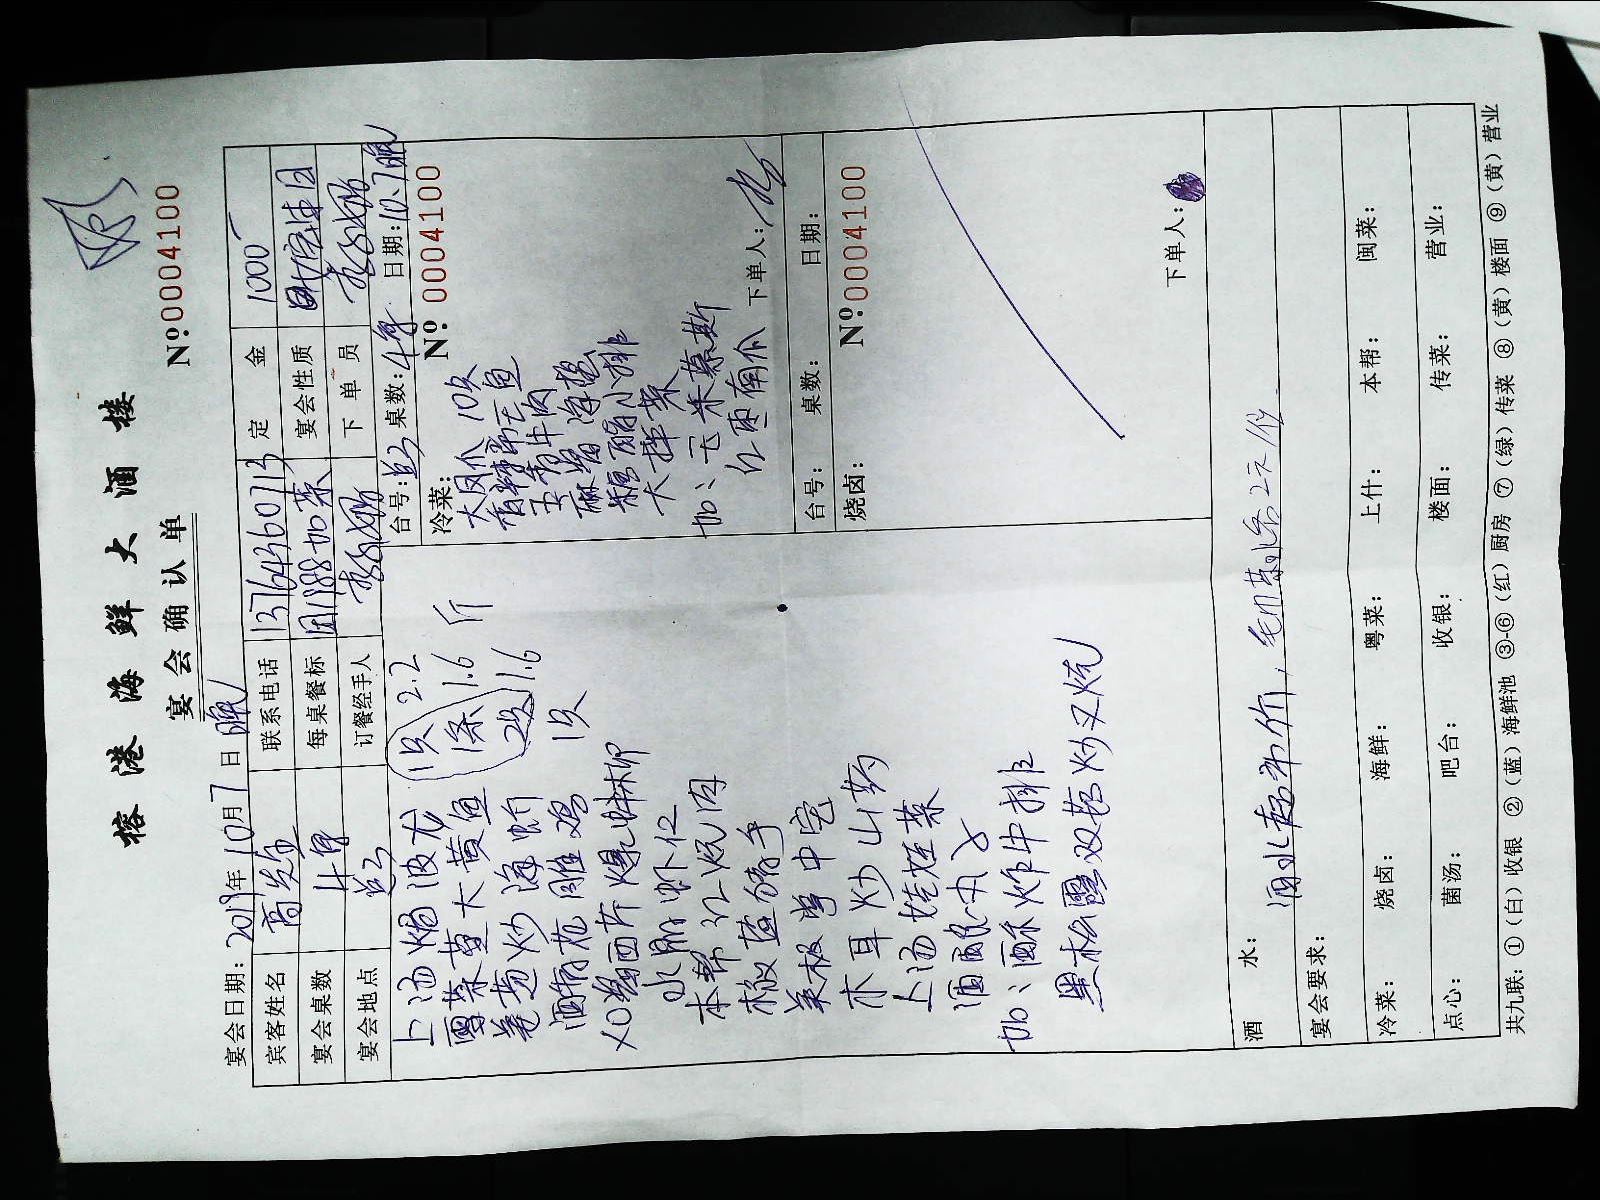 榕港海鲜大酒楼
宴会确认单
Nº:0004100
宴会日期: 2019年10月7日 晚
宾客姓名 联系电话 13764360713 定金 1000
宴会桌数 4桌 每桌餐标 1188加菜 宴会性质
宴会地点 订餐经手人 下单员
上汤焗波龙 1只 2.2斤
雪菜蒸大黄鱼 1条 1.6
姜葱炒海蟹 2只 1.6
酒香花雕鸡 1只
XO酱西芹爆蚌柳
水晶虾仁
本帮红烧肉
椒盐猪手
美极掌中宝
木耳炒山药
上汤娃娃菜
酒酿丸子
加: 酥炸牛排
黑松露双菇炒叉烧
台号: 桌数: 4桌 日期: 10.7晚
冷菜: Nº 0004100
大凤爪 10只
香辣带鱼
五香牛肉
麻酱海蜇
糖醋小排
大拌菜
加: 玉米慕斯
红枣南瓜
下单人:
台号: 桌数: 日期:
烧卤: Nº:0004100
下单人:
酒水: 酒水超市价, 毛巾茶水各2元/位
宴会要求:
冷菜: 烧卤: 海鲜: 粤菜: 上什: 本帮: 闽菜:
点心: 菌汤: 吧台: 收银: 楼面: 传菜: 营业:
共九联: ①(白)收银 ②(蓝)海鲜池 ③-⑥(红)厨房 ⑦(绿)传菜 ⑧(黄)楼面 ⑨(黄)营业